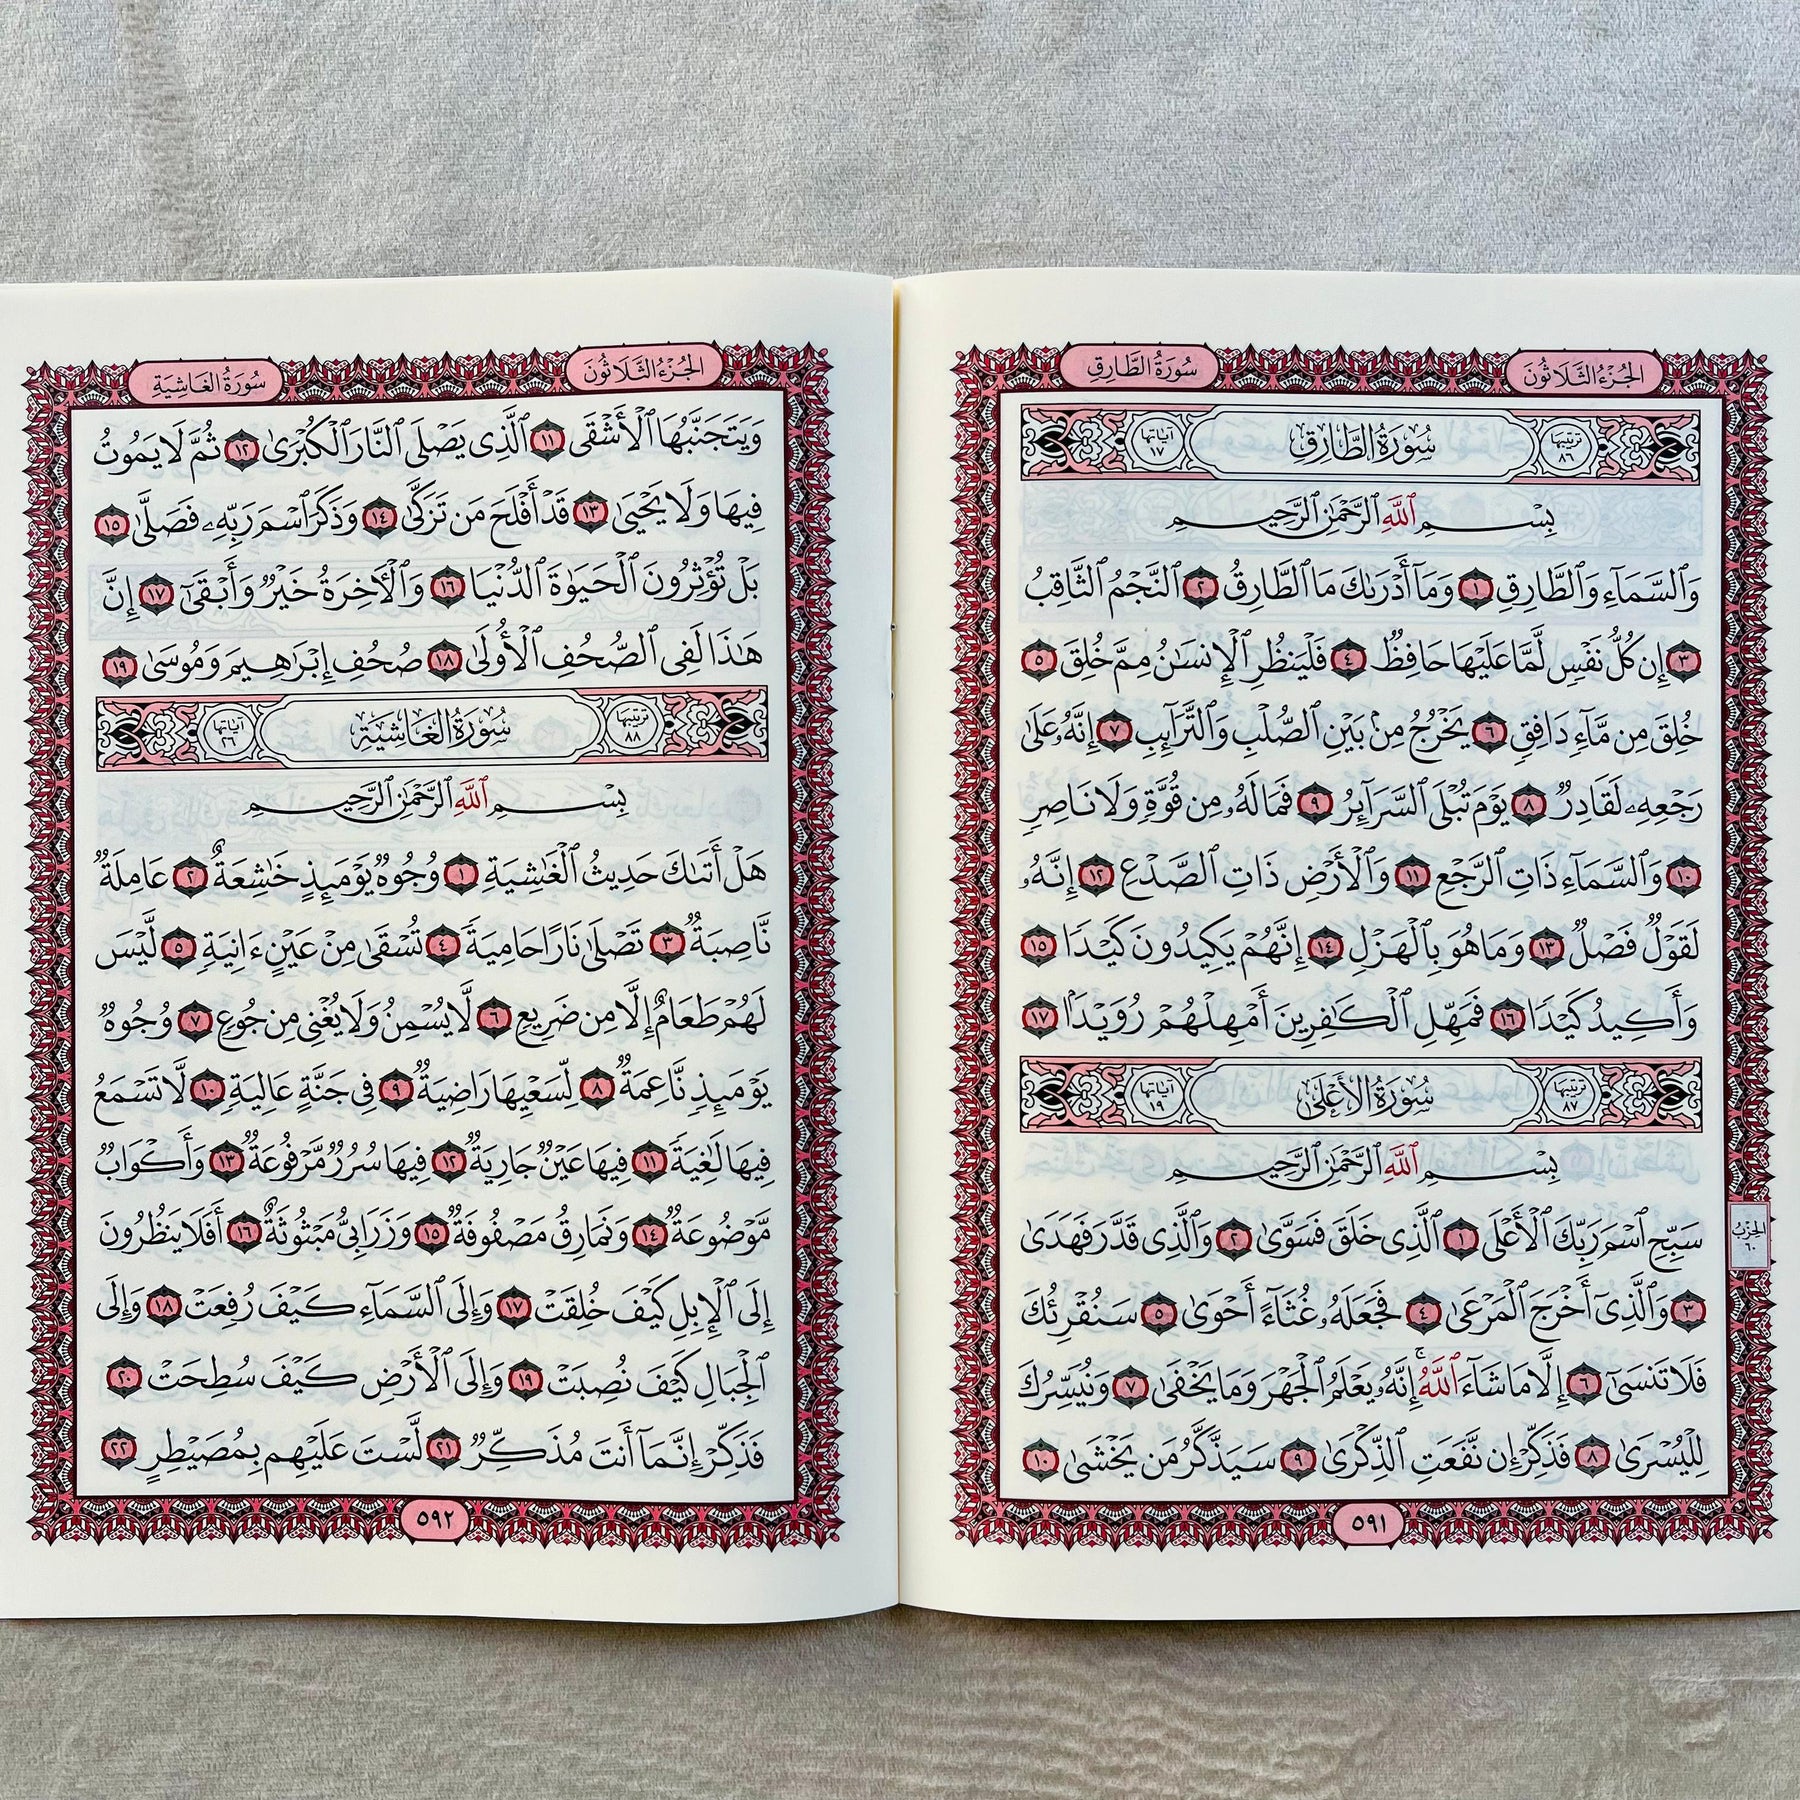 الجُزْءُ الثَّلَاثُونَ
سُورَةُ الطَّارِقِ
ترتيبها ٨٦ سُورَةُ الطَّارِقِ آياتها ١٧
بِسْمِ ٱللَّهِ ٱلرَّحْمَٰنِ ٱلرَّحِيمِ
وَٱلسَّمَآءِ وَٱلطَّارِقِ ١ وَمَآ أَدْرَىٰكَ مَا ٱلطَّارِقُ ٢ ٱلنَّجْمُ ٱلثَّاقِبُ
٣ إِن كُلُّ نَفْسٍ لَّمَّا عَلَيْهَا حَافِظٌ ٤ فَلْيَنظُرِ ٱلْإِنسَٰنُ مِمَّ خُلِقَ ٥
خُلِقَ مِن مَّآءٍ دَافِقٍ ٦ يَخْرُجُ مِنۢ بَيْنِ ٱلصُّلْبِ وَٱلتَّرَآئِبِ ٧ إِنَّهُۥ عَلَىٰ
رَجْعِهِۦ لَقَادِرٌ ٨ يَوْمَ تُبْلَى ٱلسَّرَآئِرُ ٩ فَمَا لَهُۥ مِن قُوَّةٍ وَلَا نَاصِرٍ
١٠ وَٱلسَّمَآءِ ذَاتِ ٱلرَّجْعِ ١١ وَٱلْأَرْضِ ذَاتِ ٱلصَّدْعِ ١٢ إِنَّهُۥ
لَقَوْلٌ فَصْلٌ ١٣ وَمَا هُوَ بِٱلْهَزْلِ ١٤ إِنَّهُمْ يَكِيدُونَ كَيْدًا ١٥
وَأَكِيدُ كَيْدًا ١٦ فَمَهِّلِ ٱلْكَٰفِرِينَ أَمْهِلْهُمْ رُوَيْدًۢا ١٧
ترتيبها ٨٧ سُورَةُ الأَعْلَىٰ آياتها ١٩
بِسْمِ ٱللَّهِ ٱلرَّحْمَٰنِ ٱلرَّحِيمِ
سَبِّحِ ٱسْمَ رَبِّكَ ٱلْأَعْلَى ١ ٱلَّذِى خَلَقَ فَسَوَّىٰ ٢ وَٱلَّذِى قَدَّرَ فَهَدَىٰ
الحِزْبُ ٦٠
٣ وَٱلَّذِىٓ أَخْرَجَ ٱلْمَرْعَىٰ ٤ فَجَعَلَهُۥ غُثَآءً أَحْوَىٰ ٥ سَنُقْرِئُكَ
فَلَا تَنسَىٰٓ ٦ إِلَّا مَا شَآءَ ٱللَّهُ ۚ إِنَّهُۥ يَعْلَمُ ٱلْجَهْرَ وَمَا يَخْفَىٰ ٧ وَنُيَسِّرُكَ
لِلْيُسْرَىٰ ٨ فَذَكِّرْ إِن نَّفَعَتِ ٱلذِّكْرَىٰ ٩ سَيَذَّكَّرُ مَن يَخْشَىٰ ١٠
٥٩١
الجُزْءُ الثَّلَاثُونَ
سُورَةُ الغَاشِيَةِ
وَيَتَجَنَّبُهَا ٱلْأَشْقَى ١١ ٱلَّذِى يَصْلَى ٱلنَّارَ ٱلْكُبْرَىٰ ١٢ ثُمَّ لَا يَمُوتُ
فِيهَا وَلَا يَحْيَىٰ ١٣ قَدْ أَفْلَحَ مَن تَزَكَّىٰ ١٤ وَذَكَرَ ٱسْمَ رَبِّهِۦ فَصَلَّىٰ ١٥
بَلْ تُؤْثِرُونَ ٱلْحَيَوٰةَ ٱلدُّنْيَا ١٦ وَٱلْءَاخِرَةُ خَيْرٌ وَأَبْقَىٰٓ ١٧ إِنَّ
هَٰذَا لَفِى ٱلصُّحُفِ ٱلْأُولَىٰ ١٨ صُحُفِ إِبْرَٰهِيمَ وَمُوسَىٰ ١٩
ترتيبها ٨٨ سُورَةُ الغَاشِيَةِ آياتها ٢٦
بِسْمِ ٱللَّهِ ٱلرَّحْمَٰنِ ٱلرَّحِيمِ
هَلْ أَتَىٰكَ حَدِيثُ ٱلْغَٰشِيَةِ ١ وُجُوهٌ يَوْمَئِذٍ خَٰشِعَةٌ ٢ عَامِلَةٌ
نَّاصِبَةٌ ٣ تَصْلَىٰ نَارًا حَامِيَةً ٤ تُسْقَىٰ مِنْ عَيْنٍ ءَانِيَةٍ ٥ لَّيْسَ
لَهُمْ طَعَامٌ إِلَّا مِن ضَرِيعٍ ٦ لَّا يُسْمِنُ وَلَا يُغْنِى مِن جُوعٍ ٧ وُجُوهٌ
يَوْمَئِذٍ نَّاعِمَةٌ ٨ لِّسَعْيِهَا رَاضِيَةٌ ٩ فِى جَنَّةٍ عَالِيَةٍ ١٠ لَّا تَسْمَعُ
فِيهَا لَٰغِيَةً ١١ فِيهَا عَيْنٌ جَارِيَةٌ ١٢ فِيهَا سُرُرٌ مَّرْفُوعَةٌ ١٣ وَأَكْوَابٌ
مَّوْضُوعَةٌ ١٤ وَنَمَارِقُ مَصْفُوفَةٌ ١٥ وَزَرَابِىُّ مَبْثُوثَةٌ ١٦ أَفَلَا يَنظُرُونَ
إِلَى ٱلْإِبِلِ كَيْفَ خُلِقَتْ ١٧ وَإِلَى ٱلسَّمَآءِ كَيْفَ رُفِعَتْ ١٨ وَإِلَى
ٱلْجِبَالِ كَيْفَ نُصِبَتْ ١٩ وَإِلَى ٱلْأَرْضِ كَيْفَ سُطِحَتْ ٢٠
فَذَكِّرْ إِنَّمَآ أَنتَ مُذَكِّرٌ ٢١ لَّسْتَ عَلَيْهِم بِمُصَيْطِرٍ ٢٢
٥٩٢